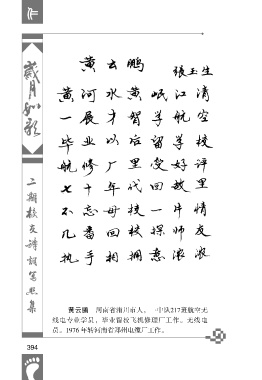 作
岁月如歌
二期校友诗词写照集
黄云鹏
张玉生
黄河水黄岷江清
一展才智学航空
毕业以后留学校
航修厂里受好评
七十年代回故里
不忘母校一片情
几番回校探师友
执手相拥意浓浓
黄云鹏 河南省淅川市人。一中队217班航空无
线电专业学员，毕业留校飞机修理厂工作。无线电
员。1976年转河南省邓州电缆厂工作。
394